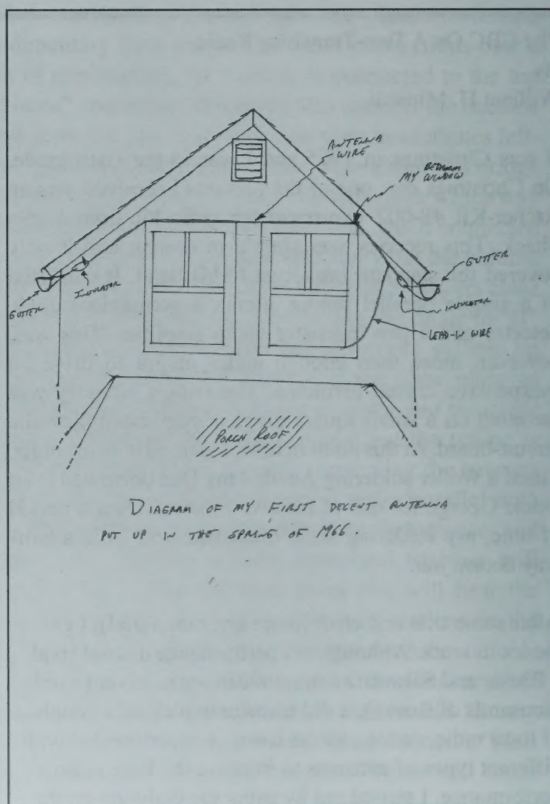 ANTENNA
WIRE
MY BEDROOM
WINDOW
GUTTER
INSULATOR
GUTTER
INSULATOR
LEAD-IN WIRE
PORCH ROOF
DIAGRAM OF MY FIRST DECENT ANTENNA
PUT UP IN THE SPRING OF 1966.